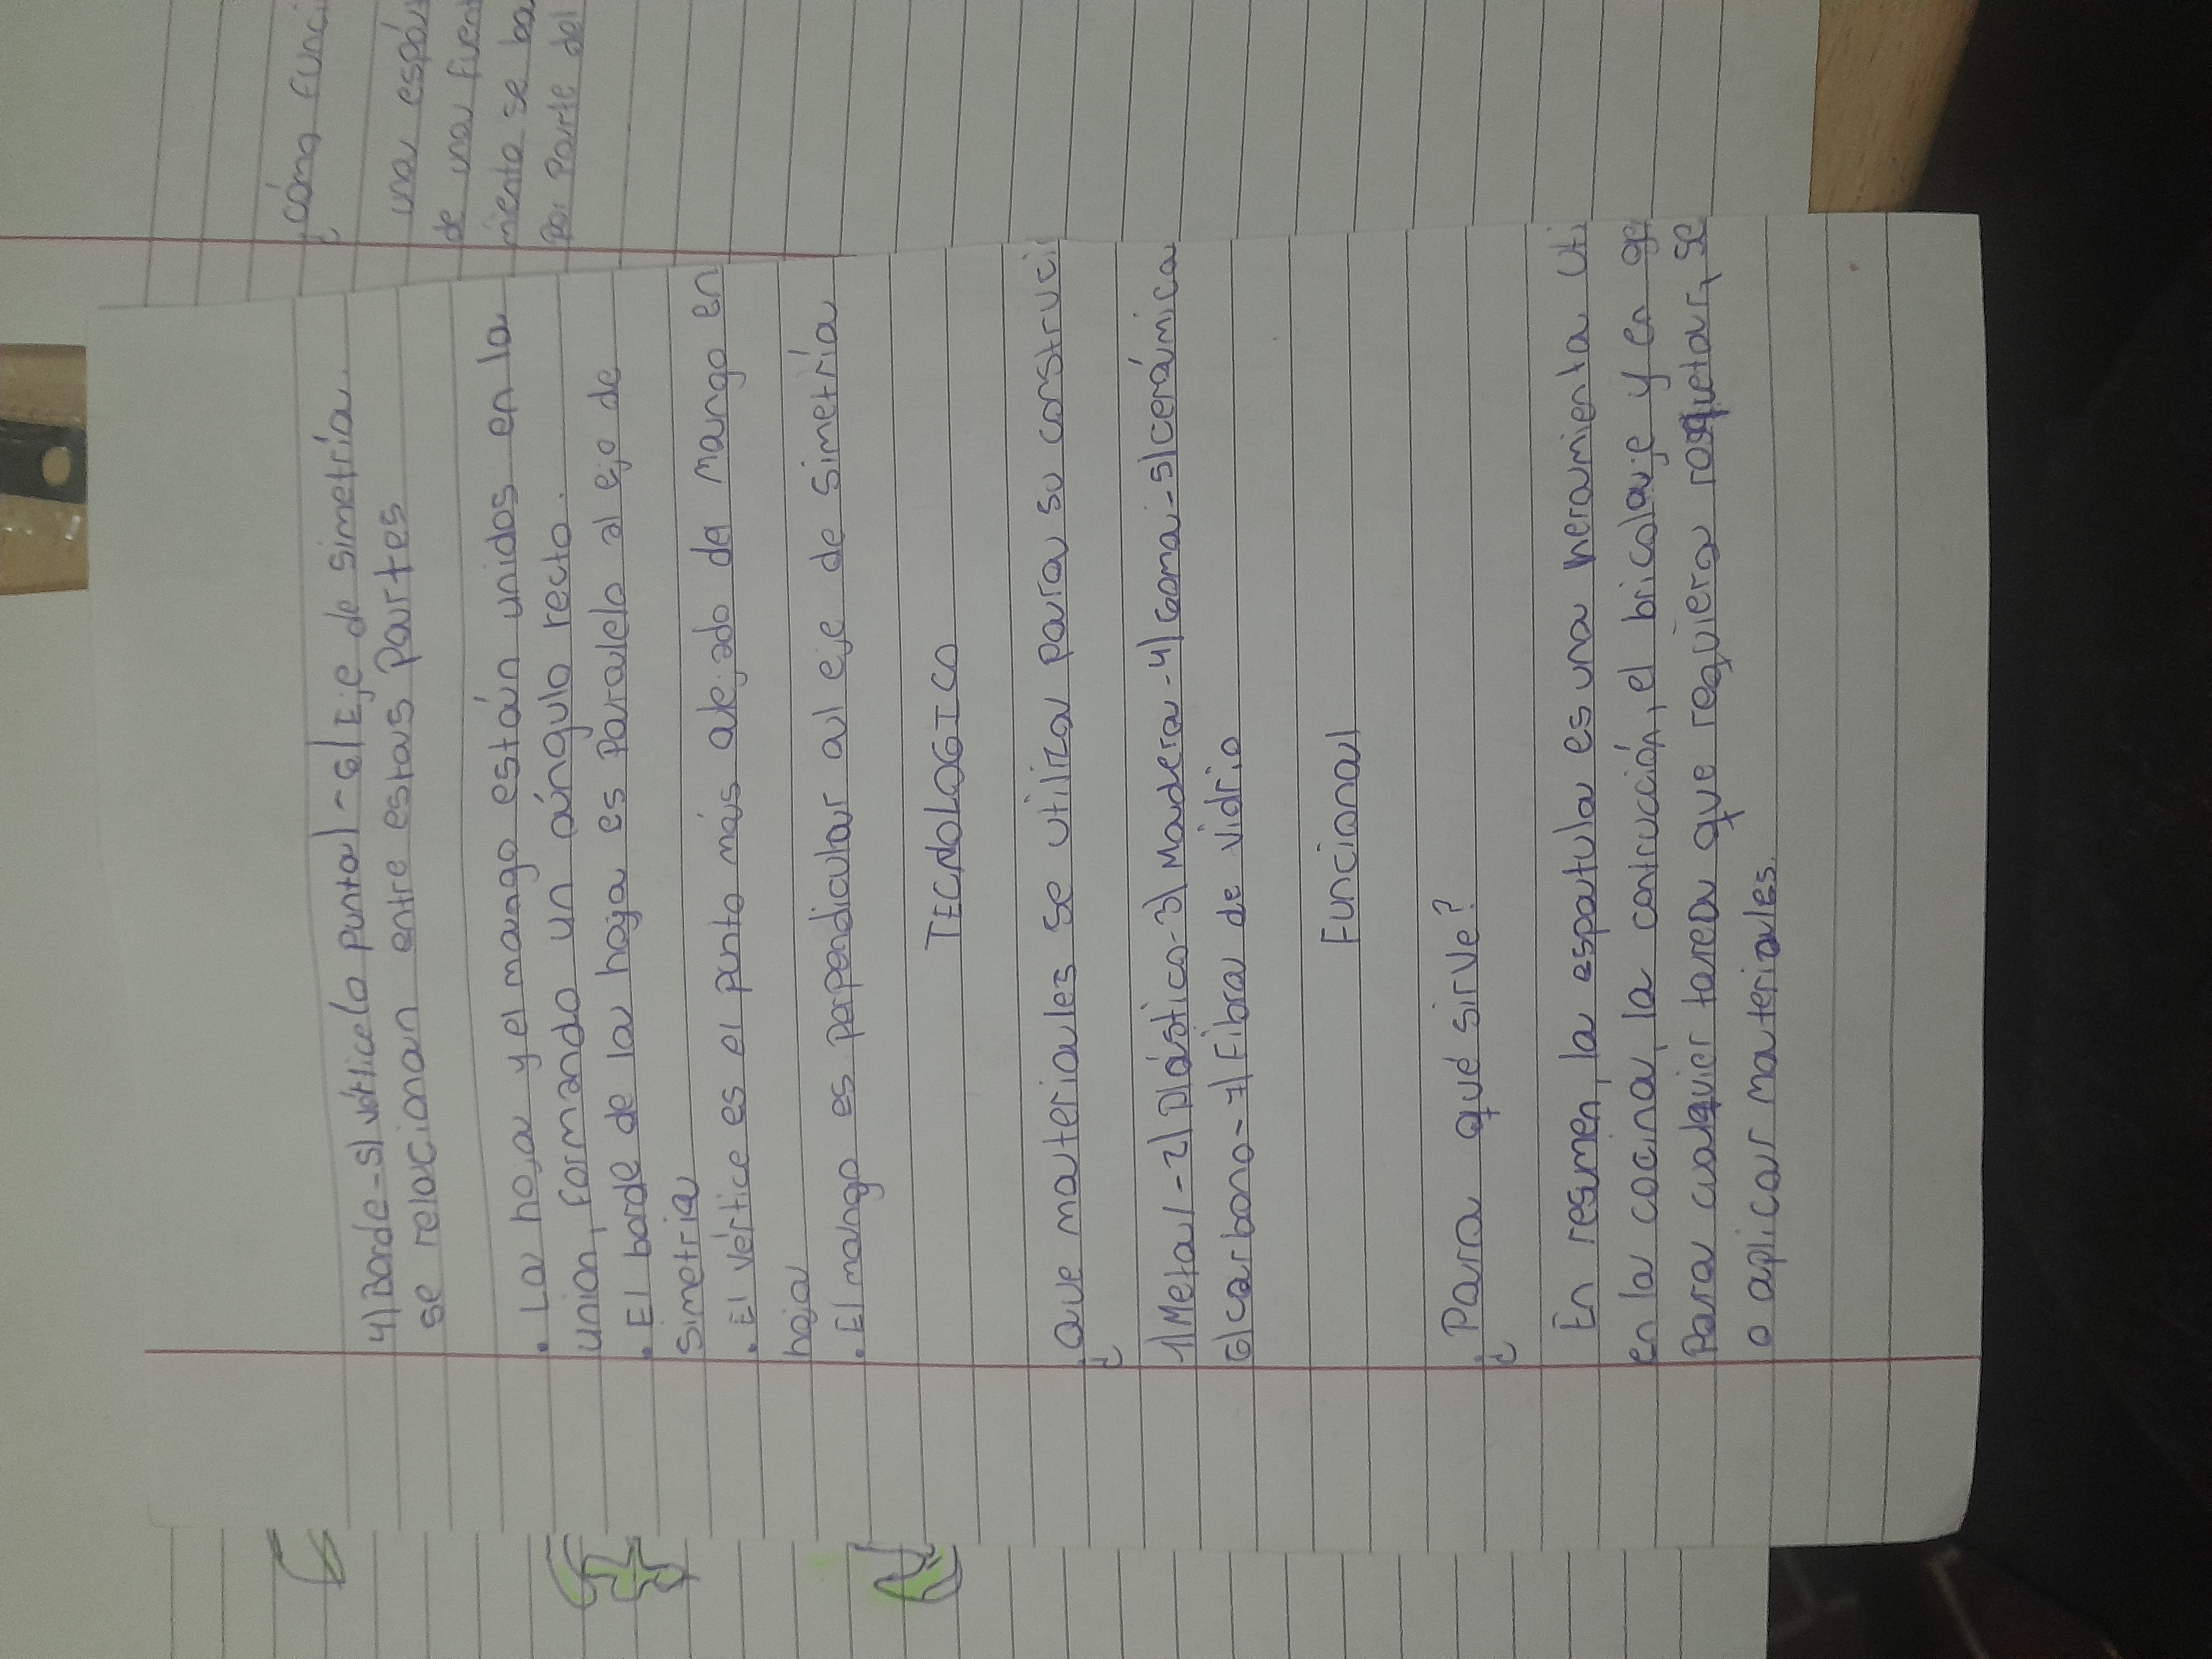 4) Borde - 5) vértice (o punta) - 6) Eje de simetría.
se relacionan entre estas partes
• La hoja y el mango están unidos en la
union, formando un ángulo recto.
• El borde de la hoja es paralelo al eje de
simetria
• El vértice es el punto más alejado del mango en
hoja
• El mango es perpendicular al eje de simetría
TECNOLOGICO
¿Que materiales se utiliza para su construci
1) Metal - 2) Plástico - 3) Madera - 4) Goma - 5) cerámica
6) carbono - 7) Fibra de vidrio
Funcional
¿Para qué sirve?
En resumen, la espatula es una heramienta uti
en la cocina, la contrucción, el bricolaje y en ge
Para cualquier tarea que requiera rasquetar, se
o aplicar materiales.
¿cómo funci
una espát
de una fuen
miento se ba
Por parte del